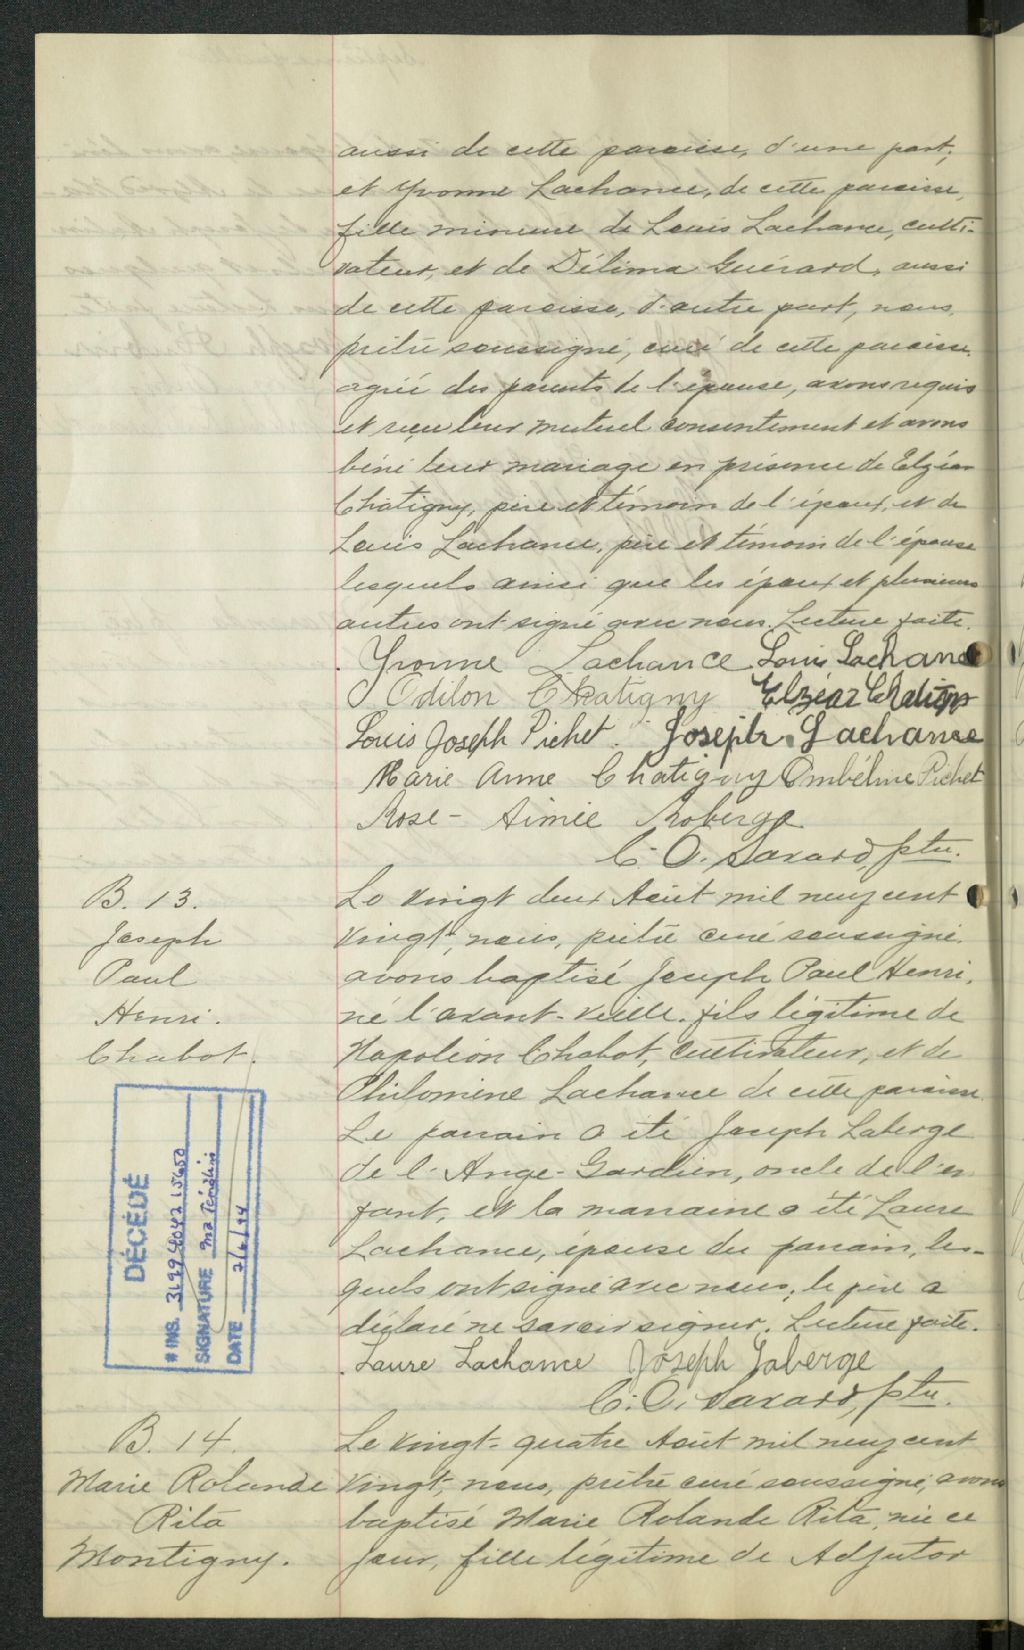 aussi de cette paroisse, d'une part;
et Yvonne Lachance, de cette paroisse,
fille mineure de Louis Lachance, culti-
vateur, et de Délima Guérard, aussi
de cette paroisse, d'autre part, nous,
prêtre soussigné, curé de cette paroisse,
agréé des parents de l'épouse, avons requis
et reçu leur mutuel consentement et avons
béni leur mariage en présence de Elzéar
Chatigny, père et témoin de l'époux, et de
Louis Lachance, père et témoin de l'épouse
lesquels ainsi que les époux et plusieurs
autres ont signé avec nous. Lecture faite.
Yvonne Lachance Louis Lachance
Odilon Chatigny Elzéar Chatigny
Louis Joseph Pichet. Joseph Lachance
Marie Anne Chatigny Ombéline Pichet
Rose-Aimée Roberge
C. O. Savard, ptre.
B. 13.
Joseph
Paul
Henri.
Chabot.
Le vingt deux Août mil neuf cent
vingt, nous, prêtre curé soussigné,
avons baptisé Joseph Paul Henri,
né l'avant-veille, fils légitime de
Napoléon Chabot, cultivateur, et de
Philomène Lachance de cette paroisse.
Le parrain a été Joseph Laberge
de l'Ange-Gardien, oncle de l'en
fant, et la marraine a été Laure
Lachance, épouse du parrain, les-
quels ont signé avec nous, le père a
déclaré ne savoir signer. Lecture faite.
Laure Lachance Joseph Laberge
C. O. Savard, ptre.
DÉCÉDÉ
# INS.
SIGNATURE
DATE 2/6/94
B. 14.
Marie Rolande
Rita
Montigny.
Le vingt-quatre Août mil neuf cent
vingt, nous, prêtre curé soussigné, avons
baptisé Marie Rolande Rita, née ce
jour, fille légitime de Adjutor